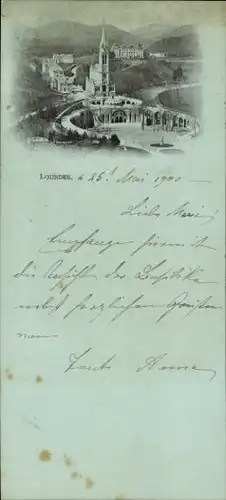 LOURDES, le 25t Mai 1900
Liebe Marie!
Empfange hiermit
die Ansicht der Basilika
nebst herzlichen Grüssen
von
Tante Anna